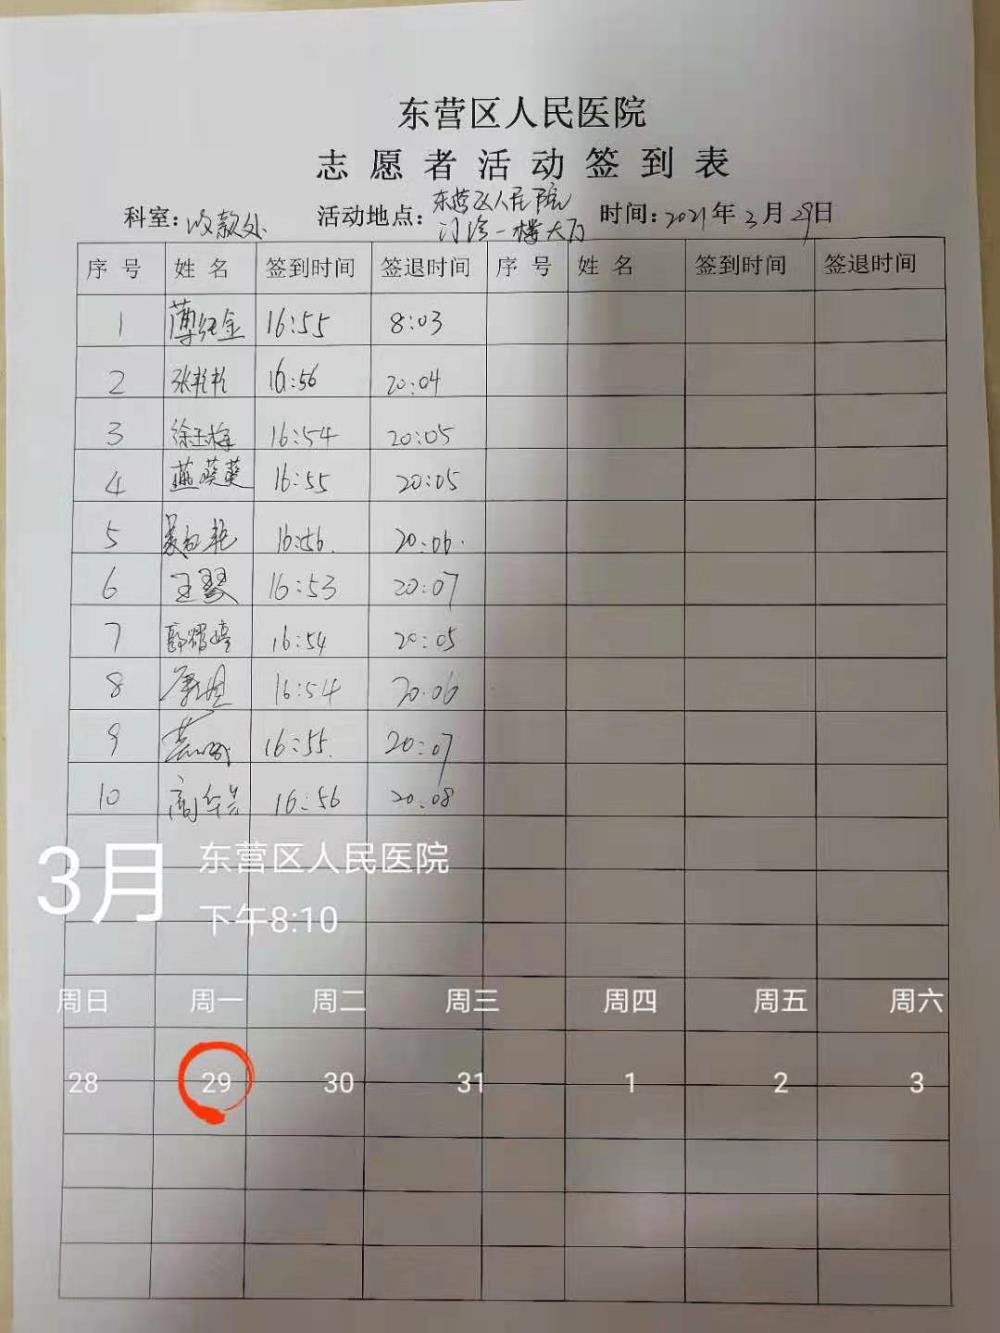 东营区人民医院
志愿者活动签到表
科室:收款处 活动地点:东营区人民医院 时间:2021年3月29日
门诊一楼大厅
序号 姓名 签到时间 签退时间 序号 姓名 签到时间 签退时间
1 薄纯金 16:55 8:03
2 张艳艳 16:56 20:04
3 徐玉梅 16:54 20:05
4 燕葵葵 16:55 20:05
5 16:56. 20:06.
6 王琴 16:53 20:07
7 郭耀婷 16:54 20:05
8 16:54 20:06
9 16:55. 20:07
10 16:56 20:08
3月 东营区人民医院
下午8:10
周日 周一 周二 周三 周四 周五 周六
28 29 30 31 1 2 3